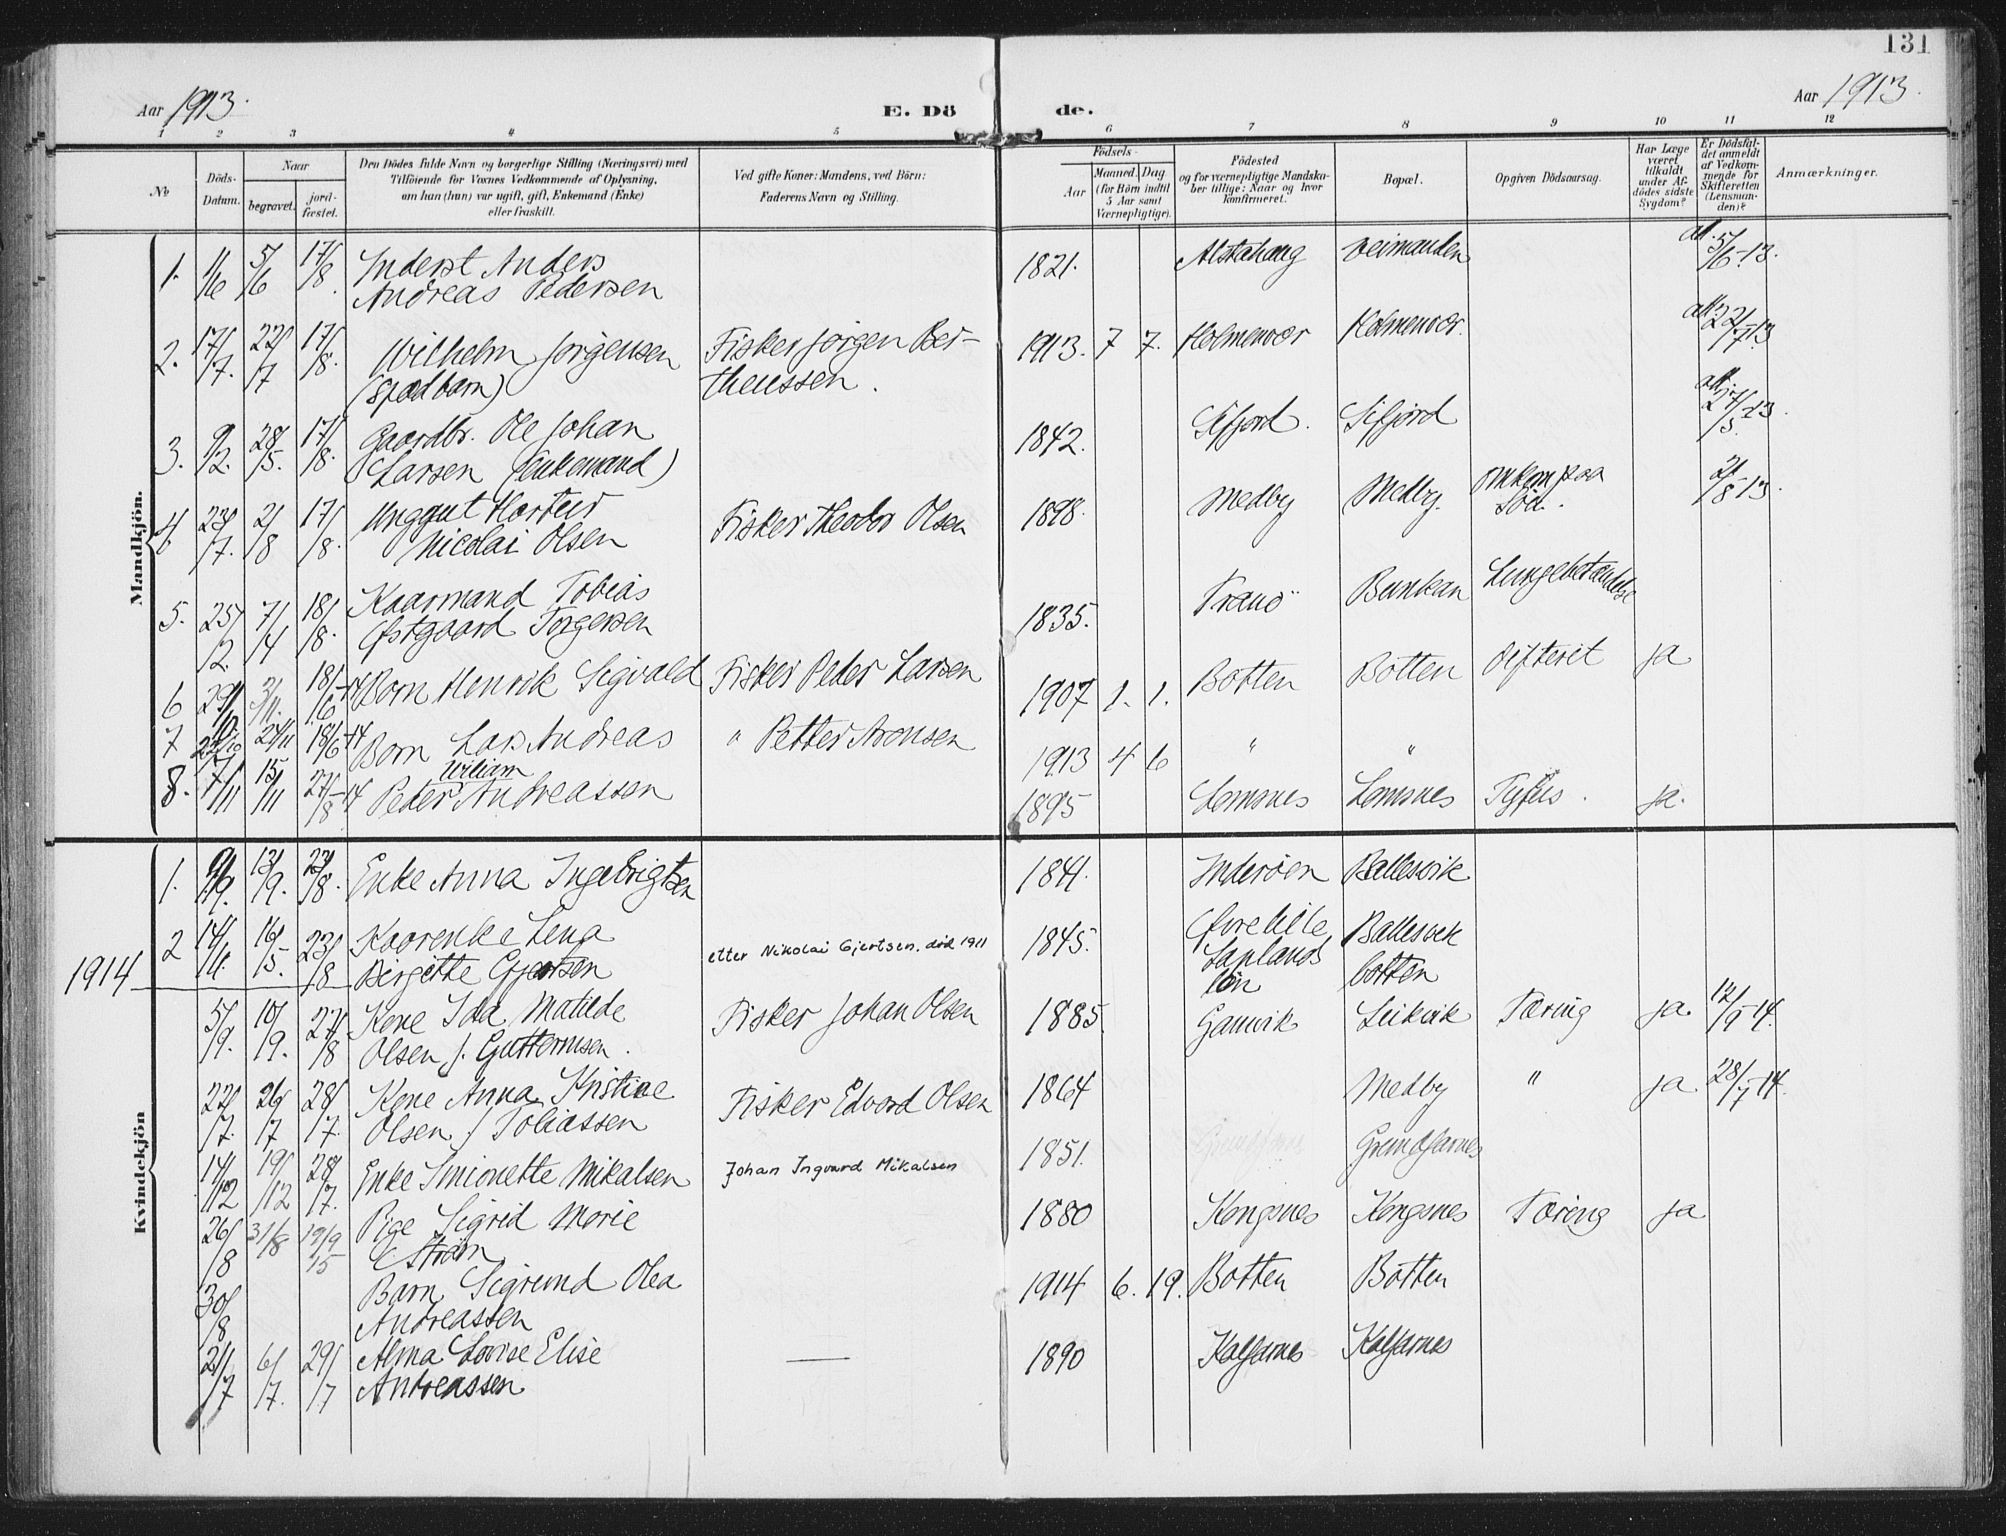 131
Aar 1913.
E. Dö
de.
Aar 1913.
1 2 3 4 5 6 7 8 9 10 11 12
No
Döds-
Datum.
Naar
begravet.
jord-
fæstet.
Den Dödes fulde Navn og borgerlige Stilling (Næringsvei) med
Tilföiende for Voxnes Vedkommende af Oplysning,
om han (hun) var ugift, gift, Enkemand (Enke)
eller fraskilt.
Ved gifte Koner: Mandens, ved Börn:
Faderens Navn og Stilling.
Födsels-
Aar
Maaned. Dag
(for Börn indtil
5 Aar samt
Værnepligtige).
Födested
og for værnepligtige Mandska-
ber tillige: Naar og hvor
konfirmeret.
Bopæl.
Opgiven Dödsaarsag.
Har Læge
været
tilkaldt
under Af-
dödes sidste
Sygdom?
Er Dödsfal-
det anmeldt
af Vedkom-
mende for
Skifteretten
(Lensman-
den)?
Anmærkninger.
Mandkjön.
1. 1/6 5/6 17/8. Inderst Anders
Andreas Pedersen
1821. Alstahaug att. 5/6-13.
2. 17/7. 22/7 17/8. Wilhelm Jørgensen
(spædbarn)
Fisker Jørgen Ber-
theussen.
1913. 7 7. Holmenvær Holmenvær. att. 22/7-13
3. 9/2. 28/5. 17/8. Gaardbr. Ole Johan
Larsen (Enkemand)
1842. Sifjord. Sifjord att.
4 23/7. 2/8 17/8. Unggut
Nicolai Olsen
Fisker Theodor Olsen
1898. Medby Medby. omkom paa
Sjøen. 2/8-13.
5. 25/2. 7/4 18/8. Kaarmand Tobias
Østgaard Torgersen
1835. Tranö Bunkan Lungebetændelse
6 18/6-14 Barn Henrik Sigvald Fisker Peder Larsen
1907 1. 1. Botten Botten Difterit ja
7 24/11 18/6-14 Barn Lars Andreas " Petter Aronsen
1913 4 6 " "
8. 15/11 27/8-14 Peder Andreassen
Wiliam
1895 Lemsnes Lemsnes Tyfus. ja.
Kvindekjön
1. 9/9. 13/9. 23/8. Enke Anna Ingebrigtsen
1841. Inderöen Ballesvik
2 14/4. 16/5. 23/8 Kaarenke Lena
Birgitte Gjertsen
etter Nikolai Gjertsen, død 1911
1845. Øvre
Laplands
län
Ballesvik
botten
1914
5/9. 10/9. 27/8 Kone Ida Matilde
Olsen f. Guttormsen.
Fisker Johan Olsen
1885 Ganvik Leikvik Tæring ja. 12/9-14.
22/7. 26/7 28/7. Kone Anna Kristine
Olsen f Tobiassen
Fisker Edvard Olsen
1864 Medby " ja 28/7-14.
14/12 19/12 28/7. Enke Simonette Mikalsen
Johan Ingvard Mikalsen
1851. Grundfarnes
26/8 31/8 12/9 15 Pige Sigrid Marie
Strøm
1880 Kongsnes Kongsnes Tæring ja
30/8 Barn Sigrund Olea
Andreassen
1914 6. 19. Botten Botten
21/7 6/7. 29/7 Alma Lovise Elise
Andreassen
1890 Kalfarnes Kalfarnes